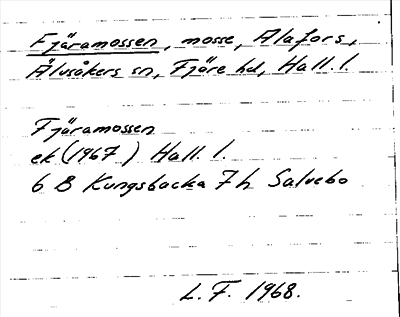 Fjäramossen, mosse, Alafors,
Älvsåkers sn, Fjäre hd, Hall. l.
Fjäramossen
ek (1967) Hall. l.
6 B Kungsbacka 7 h Salvebo
L. F. 1968.